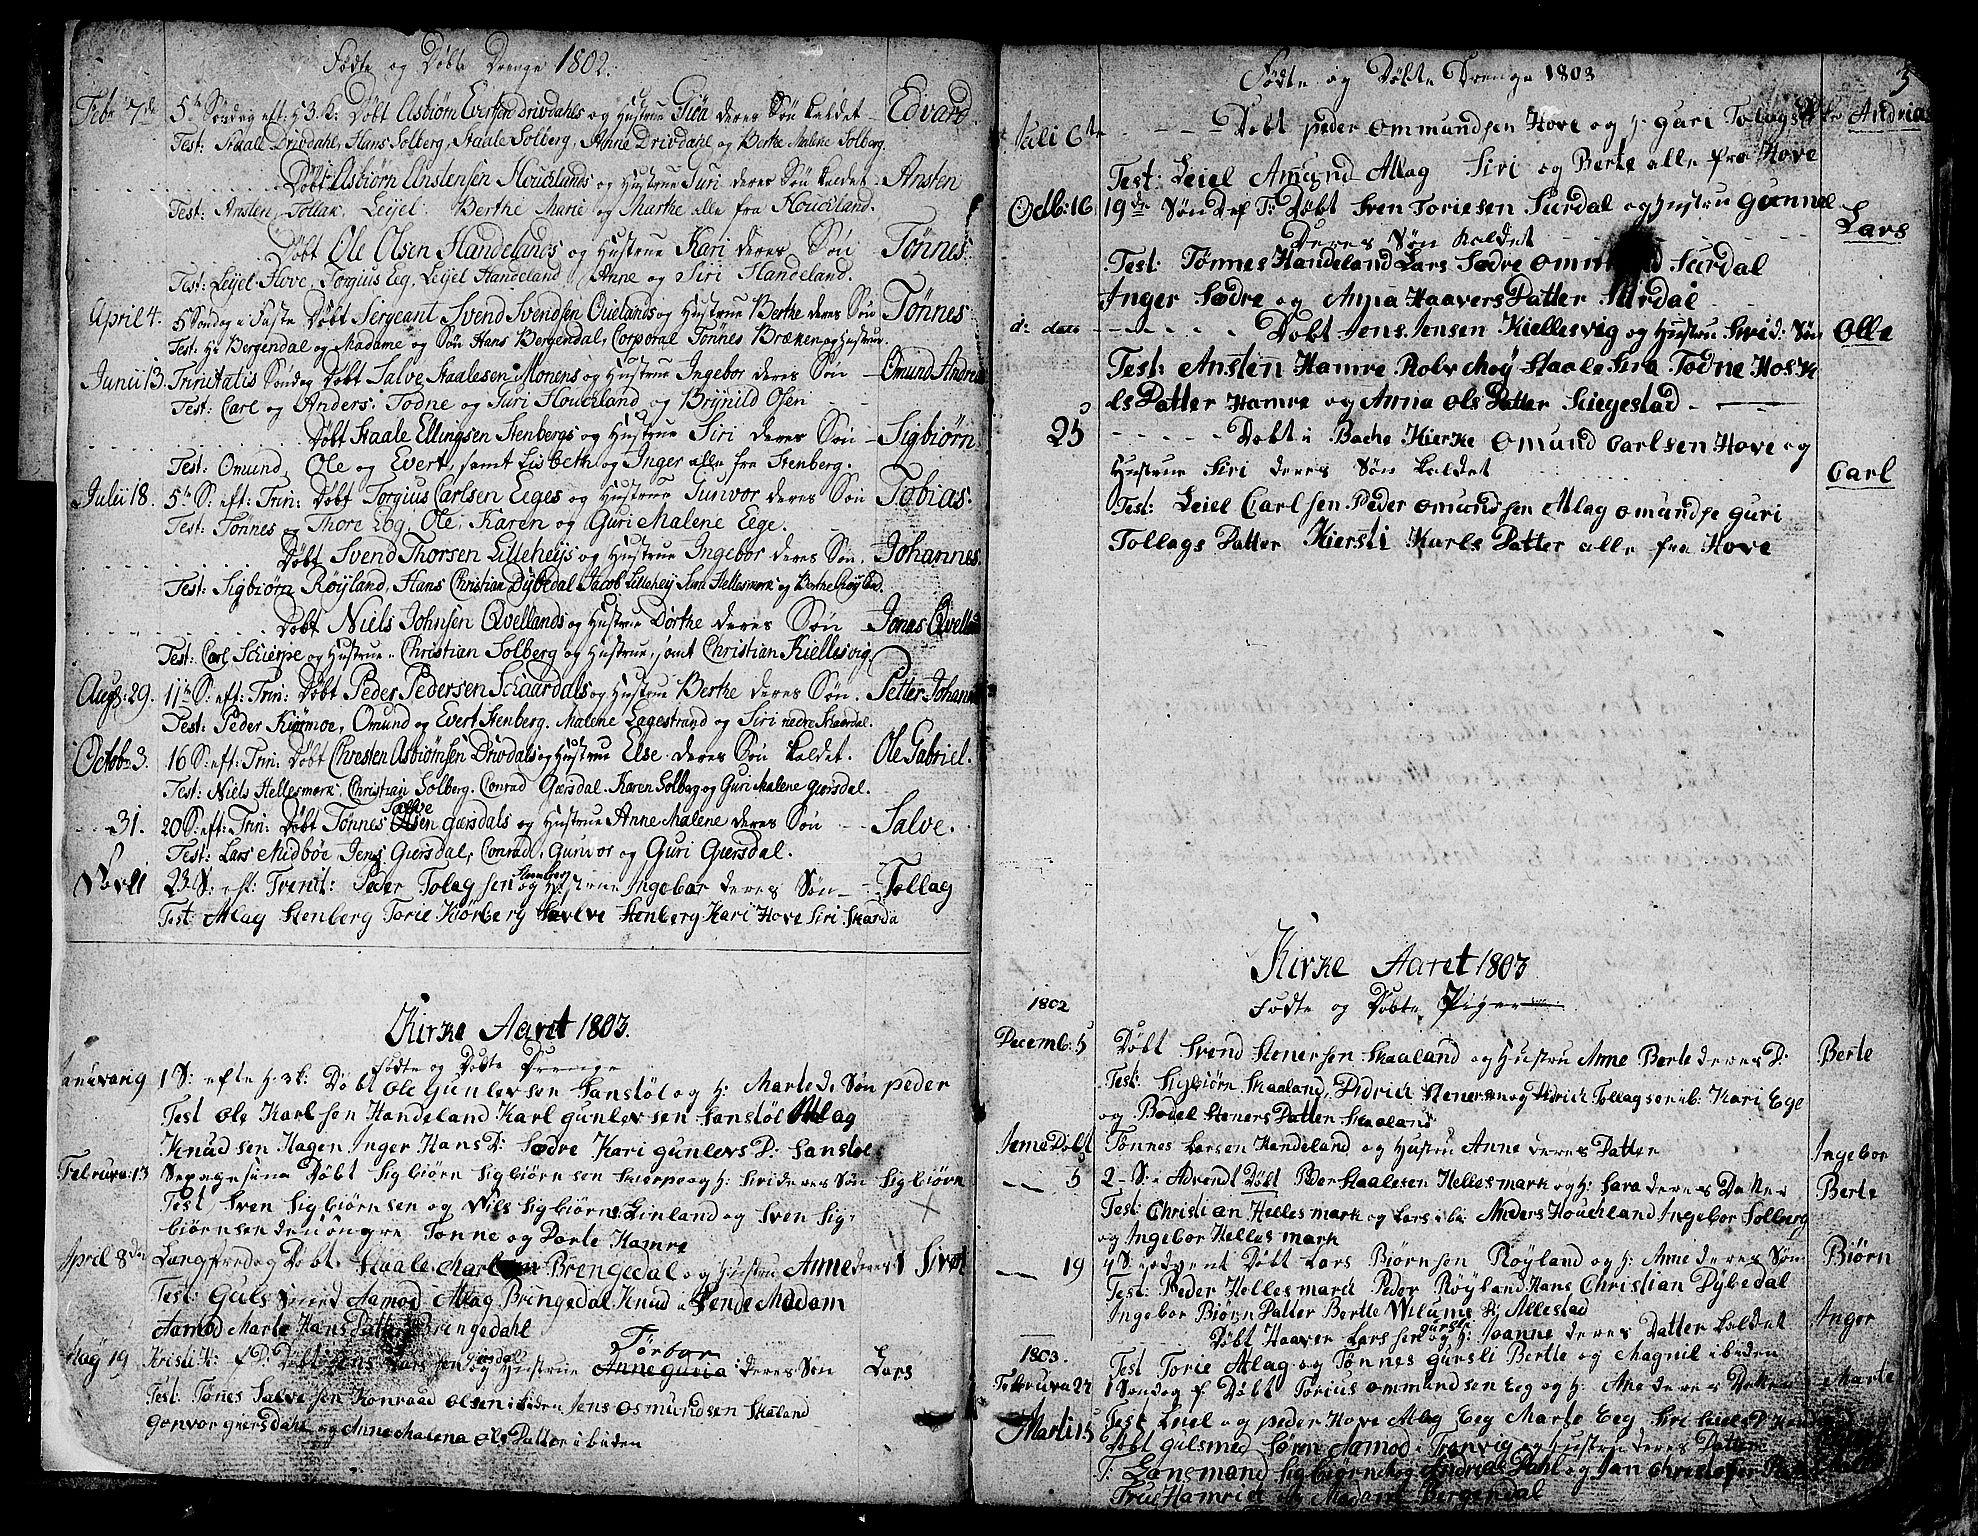 Fødte og Døbte Drenge 1802.
Febr 7de 5te Søndag eft: H3K: Døbt Asbiørn Evertsen Drivdahls og Hustrue Giöa deres Søn kaldet Edvard
Test: Staale Drivdahl, Hans Solberg, Staale Solberg, Anne Drivdahl og Berthe Malene Solberg.
Døbt Asbiørn Anstensen Houchlands og Hustrue Siri deres Søn kaldet Ansten
Test: Ansten, Tollak, Leyel. Berthe Marie og Marthe alle fra Houchland.
Døbt Ole Olsen Handelands og Hustrue Kari deres Søn Tønnes
Test: Leyel Hove, Torgius Eeg, Leyel Handeland, Anne og Siri Handeland.
April 4. 5 Søndag i Faste Døbt Sergeant Svend Svendsen Qvielands og Hustrue Berthe deres Søn Tønnes
Test: Hr Bergendal og Madame og Søn Hans Bergendal, Corporal Tønnes Bræken og Hustrue.
Junii 13. Trinitatis Søndag Døbt Salve Staalesen Monens og Hustrue Ingebor deres Søn Omund Andreas
Test: Carl og Anders: Todne og Siri Houchland og Brynild Osen
Døbt Staale Ellingsen Stenbergs og Hustrue Siri deres Søn Sigbiørn
Test: Omund, Ole og Evert, samt Lisbeth og Inger alle fra Stenberg.
Julii 18. 5te S: eft: Trin: Døbt Torgius Carlsen Eeges og Hustrue Gunvor deres Søn Tobias.
Test: Tønnes og Thore Eeg, Ole, Karen og Guri Malene Eege.
Døbt Svend Thorsen Lilleheijs og Hustrue Ingebor deres Søn. Johannes.
Test: Sigbiørn Røyland, Hans Christian Dybedal Jacob Lilleheij Hellesmork og Berthe Røyland.
Døbt Niels Johnsen Qvellands og Hustrue Dorthe deres Søn Jonas Qvelland
Test: Carl Schierpe og Hustrue, Christian Solberg og Hustrue, samt Christian Kiellesvig.
Aug: 29. 11te S: eft: Trin: Døbt Peder Pedersen Schaardals og Hustrue Berthe deres Søn. Petter Johan
Test: Peder Kiørmoe, Omund og Evert Stenberg. Malene Lagestrand og Siri nedre Skaardal.
Octobr 3. 16 S: eft: Trin: Døbt Chresten Asbiørnsen Drivdals og Hustrue Else deres Søn kaldet. Ole Gabriel.
Test: Niels Hellesmork, Christian Solberg, Conrad Giersdal, Karen Solberg og Guri Malene Giersdal.
31. 20 S: eft: Trin: Døbt Tønnes Salve Olsen Giersdals og Hustrue Anne Malene deres Søn Salve.
Test: Lars Midbøe Jens Giersdal, Conrad, Gunvor og Guri Giersdal.
23 S: eft: Trenit: Peder Tolagsen Stenberg og H: Ingebor deres Søn Tollag
Test: Allag Stenberg Torie Kiørberg Salve Stenberg Kari Hove Siri Skarda
Kirke Aaret 1803.
Fødte og Døbte Drenge
Januvarig 1 S: efte H 3 K: Døbt Ole Gunlevsen Sanstøl og H: Marte d. Søn Peder
Test Ole Karlsen Handeland Karl Gunlevsen Sanstøl Allag
Knudsen Hagen Inger Hans D: Sødre Kari Gunlevs D: Sanstøl
Februva: 13 Sepagesima Døbt Sigbiørn Sigbiørnsen og H: Siri deres Søn Sigbiørn
Test Sven Sigbiørnsen og Nils Sigbiørns: Linland og Sven Sig-
biørnsen den uöngre Tonne og Dorte Hamre
April 8de Langfredag Døbt Staale Brengedal og Hustrue Anne deres Sivert
Test: Gulsmed Aamod Allag Brengedal Knud i Madam
Aamod Marte Hans Datter Brengedahl
May 19 Kristi H: f D: Døbt Jens Larsen og Hustrue Anne Guria Törbor deres Søn Lars
Test: Tønes Salvesen Konraad Olsen ibiden Jens Osmundsen Skaland
Gonvor Giersdahl og Anne Malena Ols Datter ibiden
Fødte og Døbte Drenge 1803 3
Juli 6te Døbt Peder Ommundsen Hove og H: Guri Tolags Andrias
Test: Leiel Amund Allag Siri og Berte alle fra Hove
Octb: 16 19de Sønd ef T: Døbt Sven Toriesen Surdal og Hustru Gunnel
Deres Søn kaldet Lars
Test: Tønnes Handeland Lars Sødre Surdal
Inger Sødre og Anna Haavers Datter Surdal
d: dato Døbt Jens Jensen Kiellesvig og Hustru Siri d: Søn Olle
Test: Ansten Hamre Rolv Moy Staale Sira Todne
Ols Datter Hamre og Anna Ols Datter Siegestad
23 Døbt i Bache Kierke Omund Carlsen Hove og
Hustrue Siri deres Søn kaldet Carl
Test: Leiel Carlsen Peder Omundsen Allag Omundse Guri
Tollags Datter Kiersti Karls Datter alle fra Hove
Kirke Aaret 1803
1802 Fødte og Døbte Piger
Decemb: 5 Døbt Svend Stenersen Skaaland og Hustru Anne Berte deres D: Berte
Test: Sigbiørn Skaaland, Didrich Stenersen og Didrich Tollagsen ib: Kari Ege
og Bodel Steners Datter Skaaland
Seme Døbt Tønnes Larsen Handeland og Hustru Anne deres Datter Ingebor
5 2 S: Advendt Døbt Peder Staalesen Hellesmark og H: Sara deres Dater Berte
Test: Christian Hellesmark og Lars ibi: Anders Houchland Ingebor Solberg
og Ingebor Hellesmark
19 4 S: Advent Døbt Lars Biørnsen Røyland og H: Anne deres Søn Biørn
Test: Peder Hellesmark Peder Røyland Hans Christian Dybedal
Ingebor Biørn Datter Bertte Allestad
Døbt Haaver Larssen Gursli og H: Joanne deres Datter kaldet Inger
1803. Test Torie Allag og Tønnes Gursli Bertte og Magnil ibiden
Februva 27 1 Søndag f Døbt Torius Ommundsen Eeg og H: Ane deres Datter Marte
Test Leiel og Peder Hove Allag Eeg Marte Eeg Siri
Marti 15 Døbt Gulsmed Søren Aamod i Trønvig og Hustru deres Datter
T: Lansmand Sigbiørn og Andreas Dahl og Jan Christofer
Frue Hamrich og Madam Bergendal